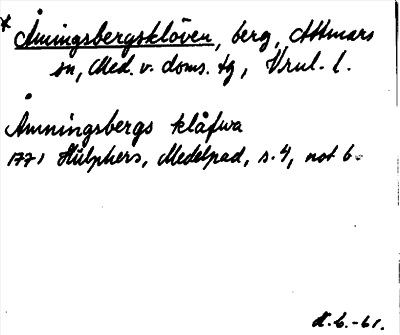 * Åmningsbergsklöven, berg, Attmars
sn, Med. v. doms. tg, Vnrl. l.
Åmningsbergs klåfwa
1771 Hülphers, Medelpad, s. 4, not 6.